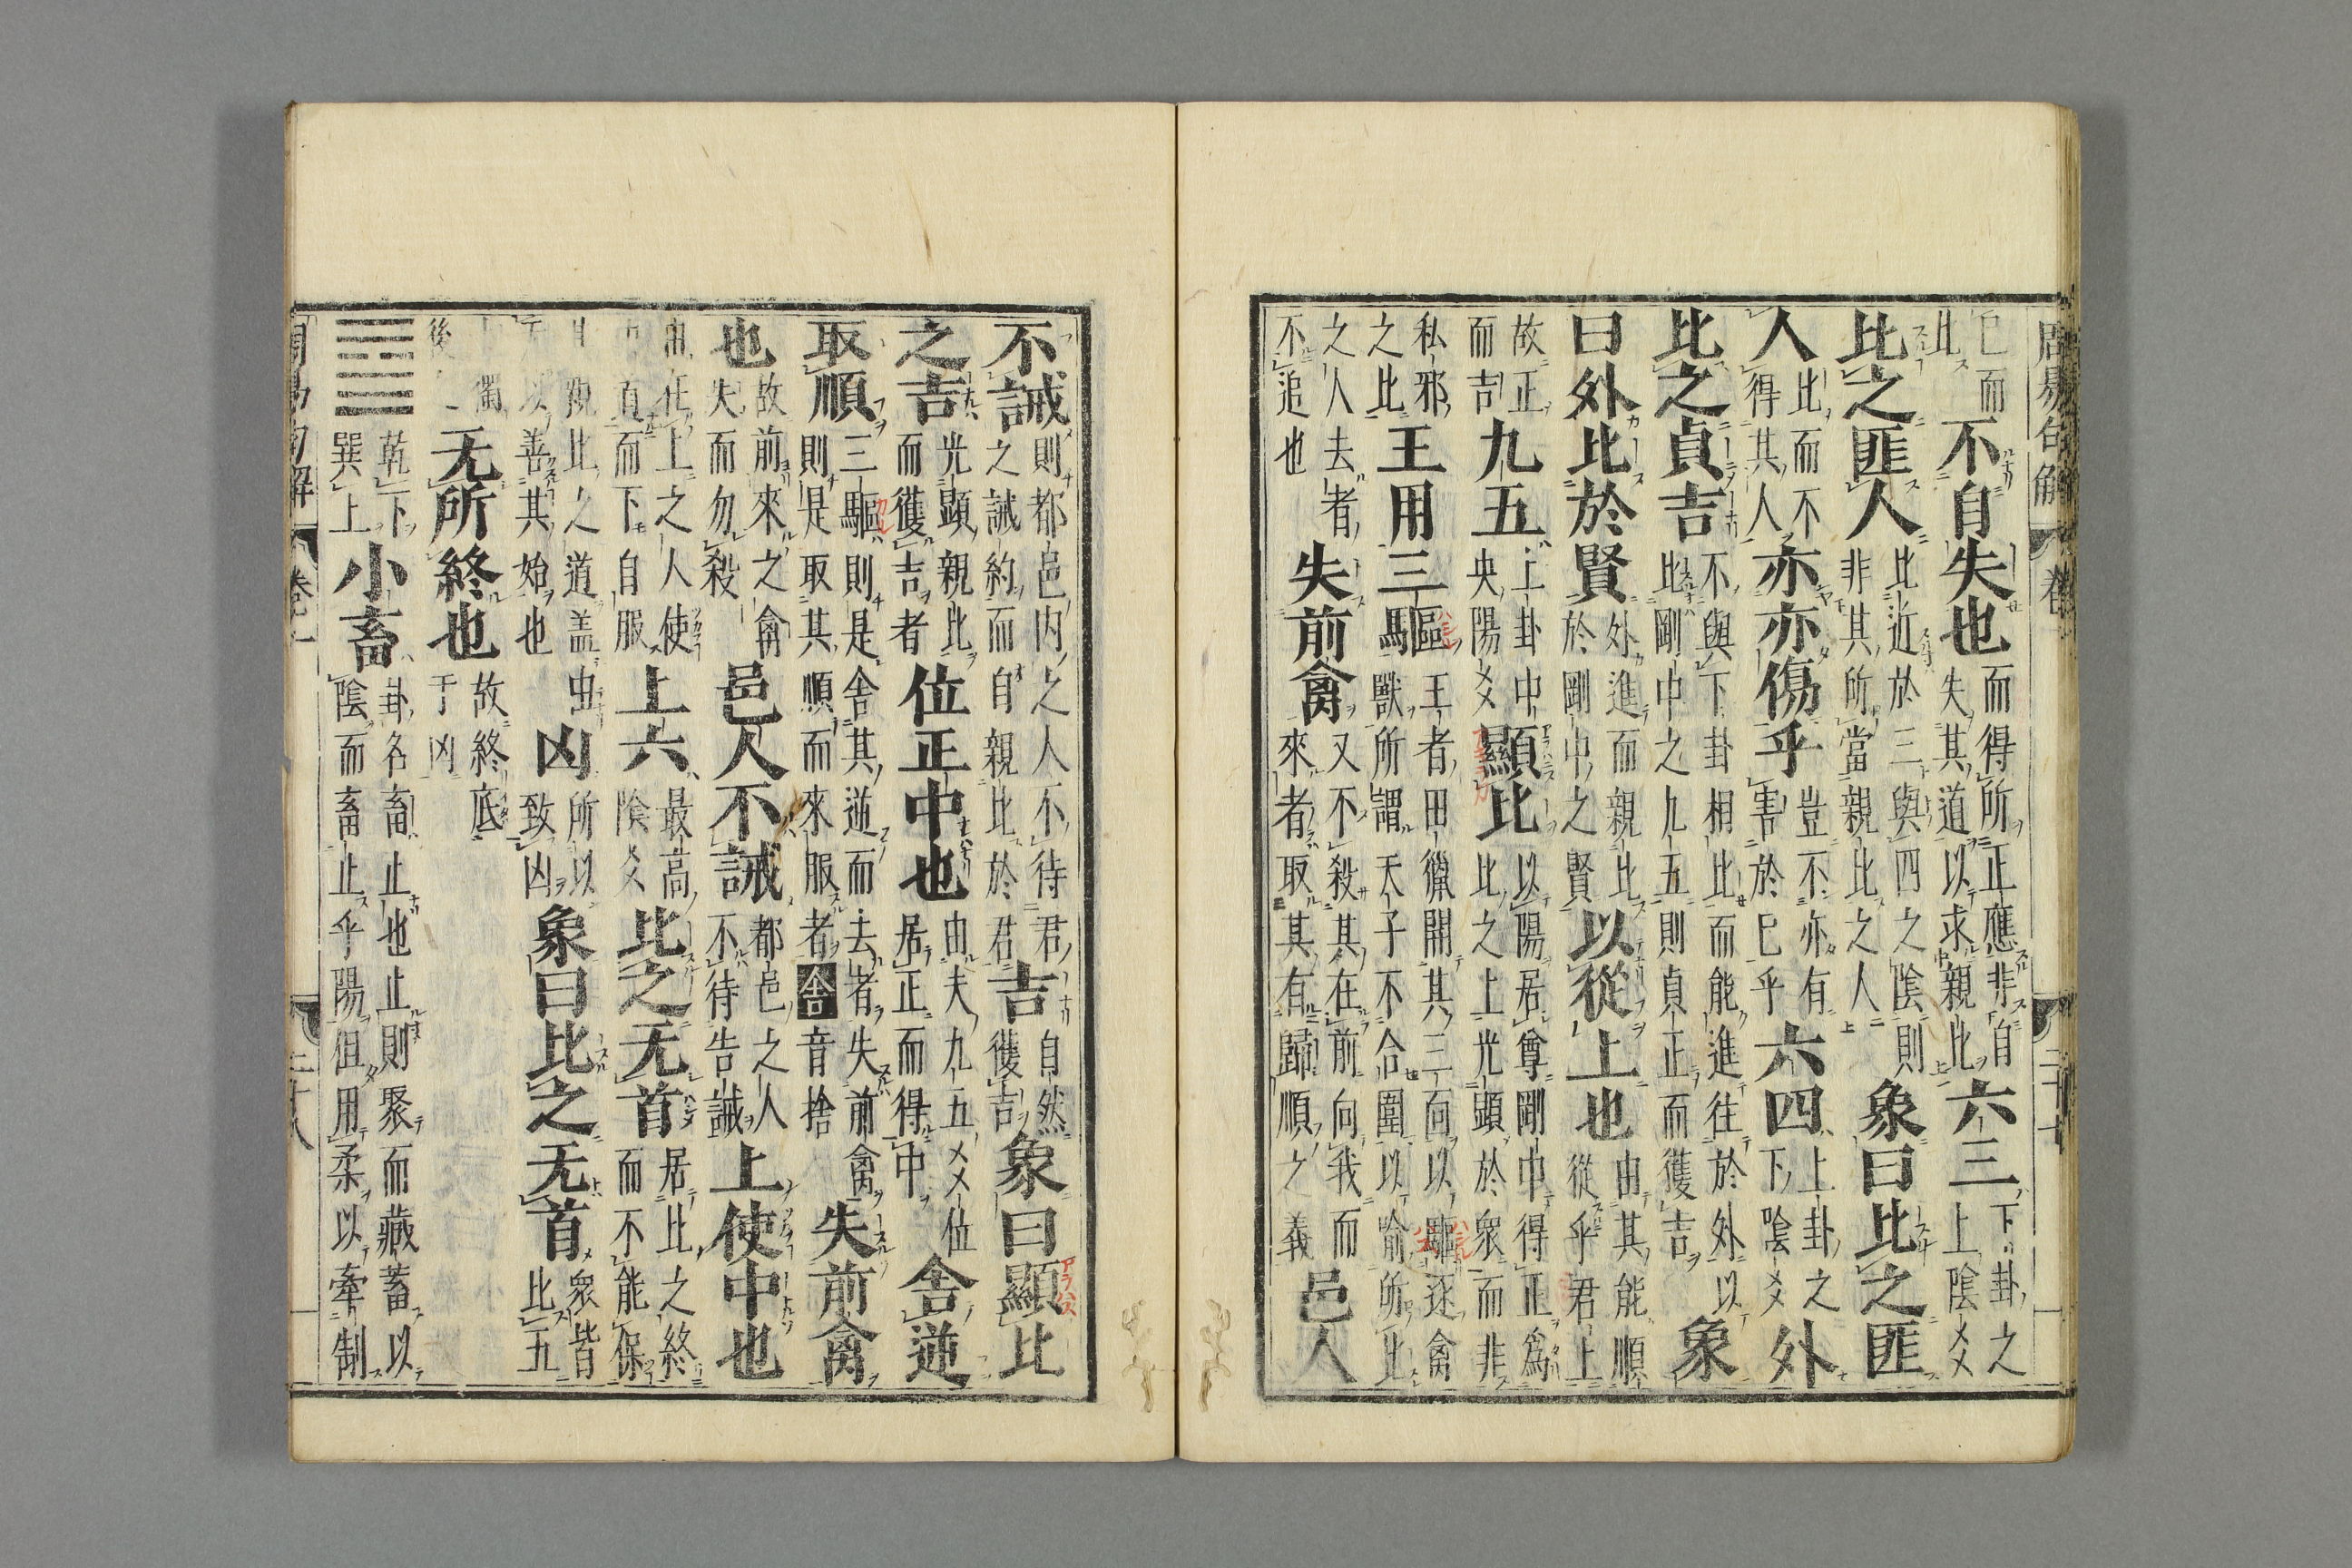 周易句解 卷 二十七
已而此不自失也而得所正應非自失其道以求親比六三下卦之上陰爻
比之匪人比近於三與四之陰則非其所當親比之人象曰比之匪
人比而不得其人亦亦傷乎豈不亦有害於已乎六四上卦之下陰爻外
比之貞吉不與下卦相比而能進往於外以比剛中之九五則貞正而獲吉象
曰外比於賢外進而親比於剛中之賢以從上也由其能順從乎君上
故正而吉九五上卦中央陽爻顯比以陽居尊剛中得正爲比之上光顕於衆而非
私邪之比王用三驅王者田獵開其三面以驅逐禽獸所謂天子不合圍以喻所比
之人去者不追也失前禽又不殺其在前向我而來者取其有歸順之義邑人
不誡則都邑内之人不待君之誡約而自親比於君吉自然獲吉象曰顯比
之吉光顯親比而獲吉者位正中也由夫九五爻位居正而得中舍逆
取順三驅則是舍其逆而去者失前禽則是取其順而來服者舍音捨失前禽
也故前來之禽失而勿殺邑人不誡都邑之人不待告誡上使中也
由在上之人使而下自服上六最高陰爻比之无首居比之終而不能保
比之道盖以善其始也凶所以致凶象曰比之无首衆皆比五
獨後无所終也故終底于凶
䷈乾下巽上小畜卦名畜止也止則聚而藏蓄以陰而畜止乎陽但用柔以牽制
周易句解 卷一 二十八